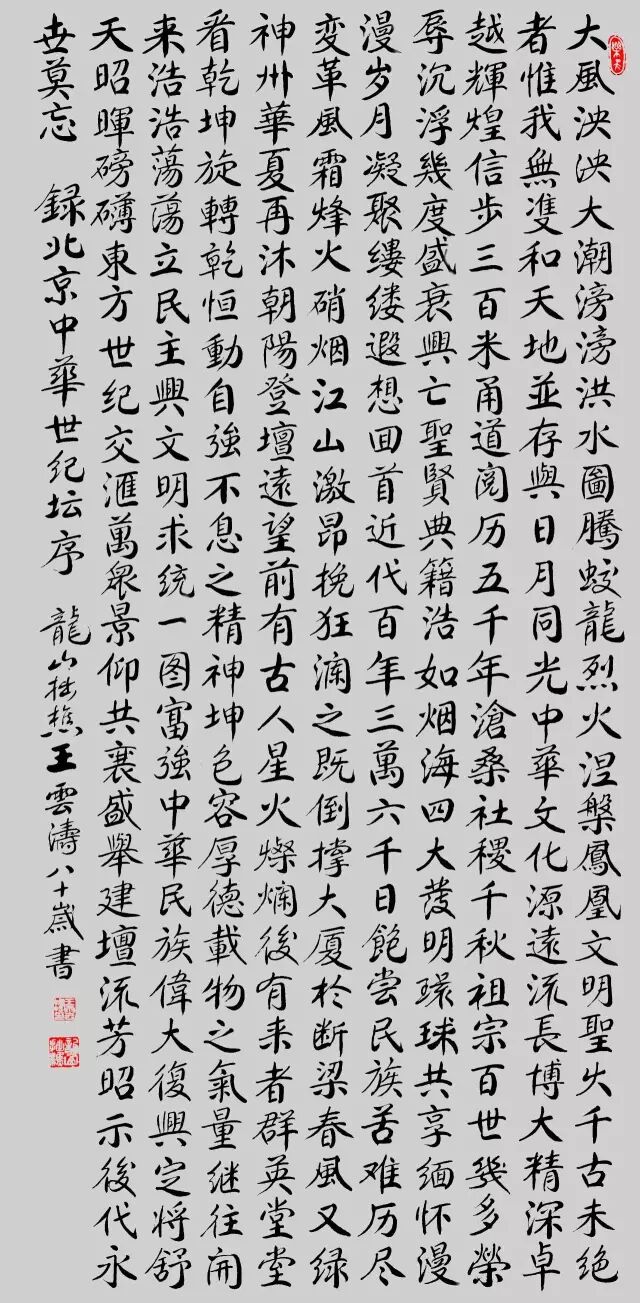 大風泱泱大潮滂滂洪水圖騰蛟龍烈火涅槃鳳凰文明聖火千古未絶
者惟我無雙和天地並存與日月同光中華文化源遠流長博大精深卓
越輝煌信步三百米甬道阅历五千年滄桑社稷千秋祖宗百世幾多榮
辱沉浮幾度盛衰興亡聖賢典籍浩如烟海四大發明環球共享缅怀漫
漫岁月凝聚缕缕遐想回首近代百年三萬六千日飽尝民族苦难历尽
变革風霜烽火硝烟江山激昂挽狂澜之既倒撑大厦於断梁春風又绿
神州華夏再沐朝陽登壇遠望前有古人星火燦爛後有来者群英堂堂
看乾坤旋轉乾恒動自強不息之精神坤色容厚德載物之氣量继往開
来浩浩蕩蕩立民主興文明求统一图富強中華民族偉大復興定将舒
天昭暉磅礴東方世纪交滙萬眾景仰共襄盛舉建壇流芳昭示後代永
世莫忘 録北京中華世纪坛序 龍山拙樵王雲濤八十歲書